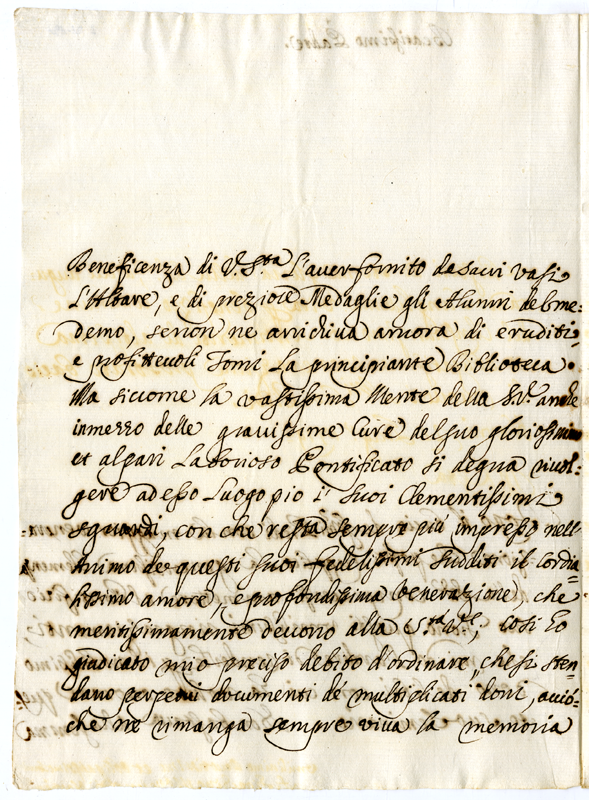 Beneficenza di V. S.ta l'aver fornito de sacri vasi
l'Altare, e di preziose Medaglie gli Alunni del me=
demo, se non ne arrichiva ancora di eruditi,
e profittevoli Tomi la principiante Biblioteca.
Ma siccome la vastissima Mente della S. V. anche
in mezzo delle gravissime Cure del suo gloriosissimo
et al pari laborioso Pontificato si degna rivol=
gere ad esso Luogo pio i suoi Clementissimi
sguardi, con che resta sempre più impresso nell'
Animo de questi suoi fedelissimi sudditi il cordia=
lissimo amore, e profondissima venerazione, che
meritissimamente devono alla S.tà V.ra, così ho
giudicato mio preciso debito d'ordinare, che si sten=
dano perpetui documenti de' multiplicati doni, acciò=
che ne rimanga sempre viva la memoria